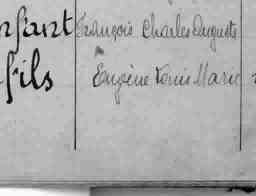 nfant François Charles Auguste
fils Eugène Louis Marie